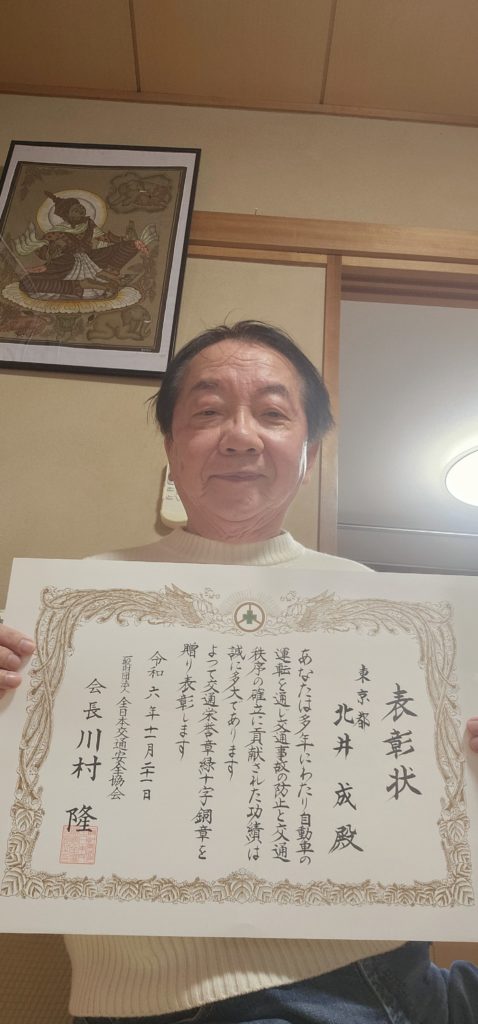 表彰状
東京都
北井 成 殿
あなたは多年にわたり自動車の
運転を通し交通事故の防止と交通
秩序の確立に貢献された功績は
誠に多大であります
よって交通栄誉章緑十字銅章を
贈り表彰します
令和六年十一月二十一日
一般財団法人 全日本交通安全協会
会長 川村 隆